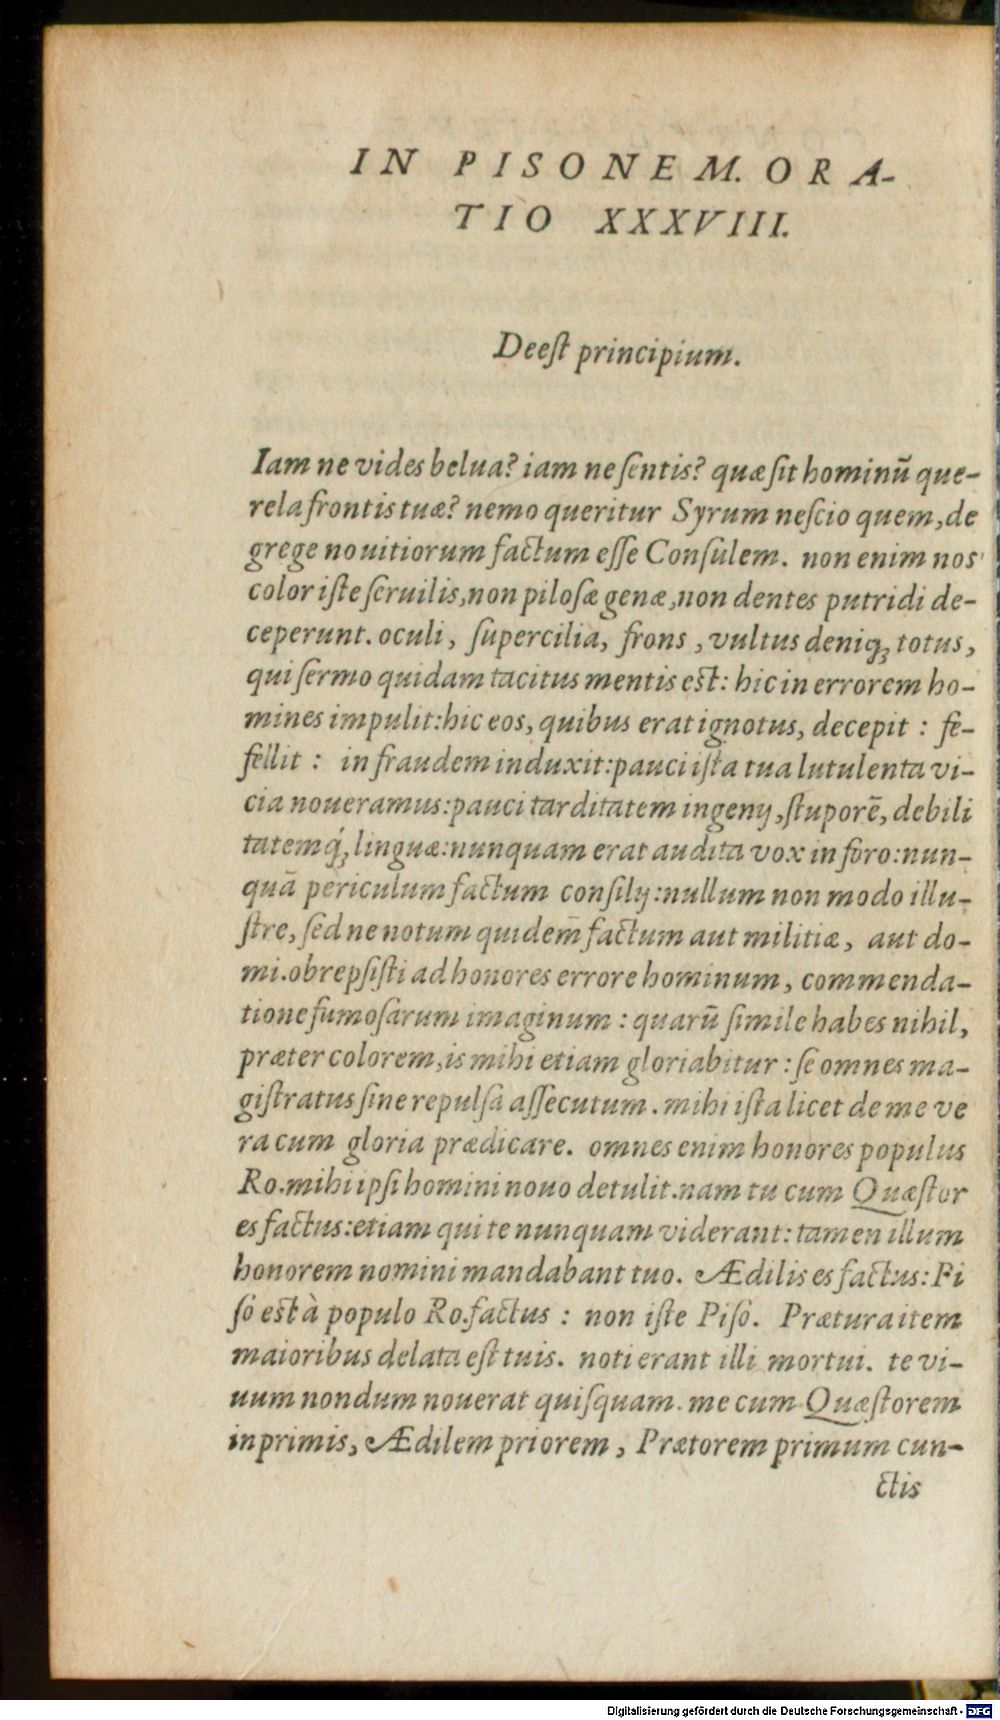 IN PISONEM. ORA-
TIO XXXVIII.
Deest principium.
Iam ne vides belua? iam ne sentis? quæ sit hominũ que-
rela frontis tuæ? nemo queritur Syrum nescio quem, de
grege nouitiorum factum esse Consulem. non enim nos
color iste seruilis, non pilosæ genæ, non dentes putridi de-
ceperunt. oculi, supercilia, frons, vultus deniq; totus,
qui sermo quidam tacitus mentis est: hic in errorem ho-
mines impulit: hic eos, quibus erat ignotus, decepit: fe-
fellit: in fraudem induxit: pauci ista tua lutulenta vi-
cia noueramus: pauci tarditatem ingenij, stuporẽ, debili
tatemq́; linguæ: nunquam erat audita vox in foro: nun-
quã periculum factum consilij: nullum non modo illu-
stre, sed ne notum quidem̃ factum aut militiæ, aut do-
mi. obrepsisti ad honores errore hominum, commenda-
tione fumosarum imaginum: quarũ simile habes nihil,
præter colorem, is mihi etiam gloriabitur: se omnes ma-
gistratus sine repulsa assecutum. mihi ista licet de me ve
ra cum gloria prædicare. omnes enim honores populus
Ro. mihi ipsi homini nouo detulit. nam tu cum Quæstor
es factus: etiam qui te nunquam viderant: tamen illum
honorem nomini mandabant tuo. Ædilis es factus: Pi
so est à populo Ro. factus: non iste Piso. Prætura item
maioribus delata est tuis. noti erant illi mortui. te vi-
uum nondum nouerat quisquam. me cum Quæstorem
inprimis, Ædilem priorem, Prætorem primum cun-
ctis
Digitalisierung gefördert durch die Deutsche Forschungsgemeinschaft - DFG